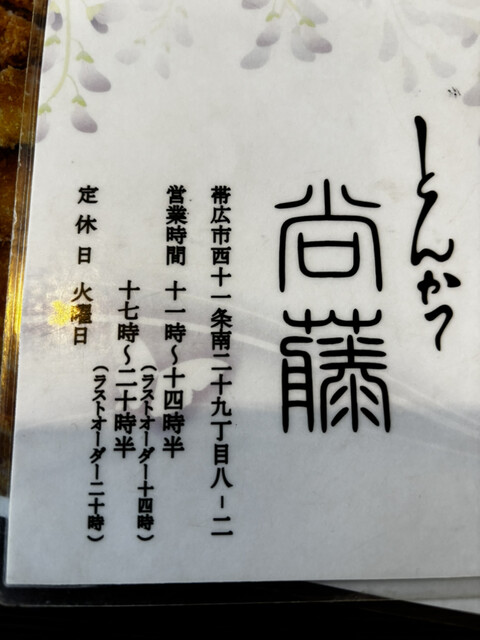 とんかつ
尚藤
帯広市西十一条南二十九丁目八-二
営業時間 十一時～十四時半
(ラストオーダー十四時)
十七時～二十時半
(ラストオーダー二十時)
定休日 火曜日